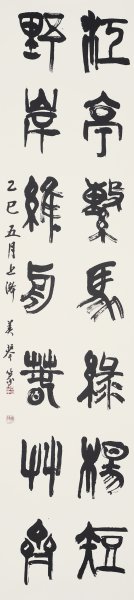 江亭繫馬綠楊短
野岸維舟春艸齊
乙巳五月上澣 美琴篆